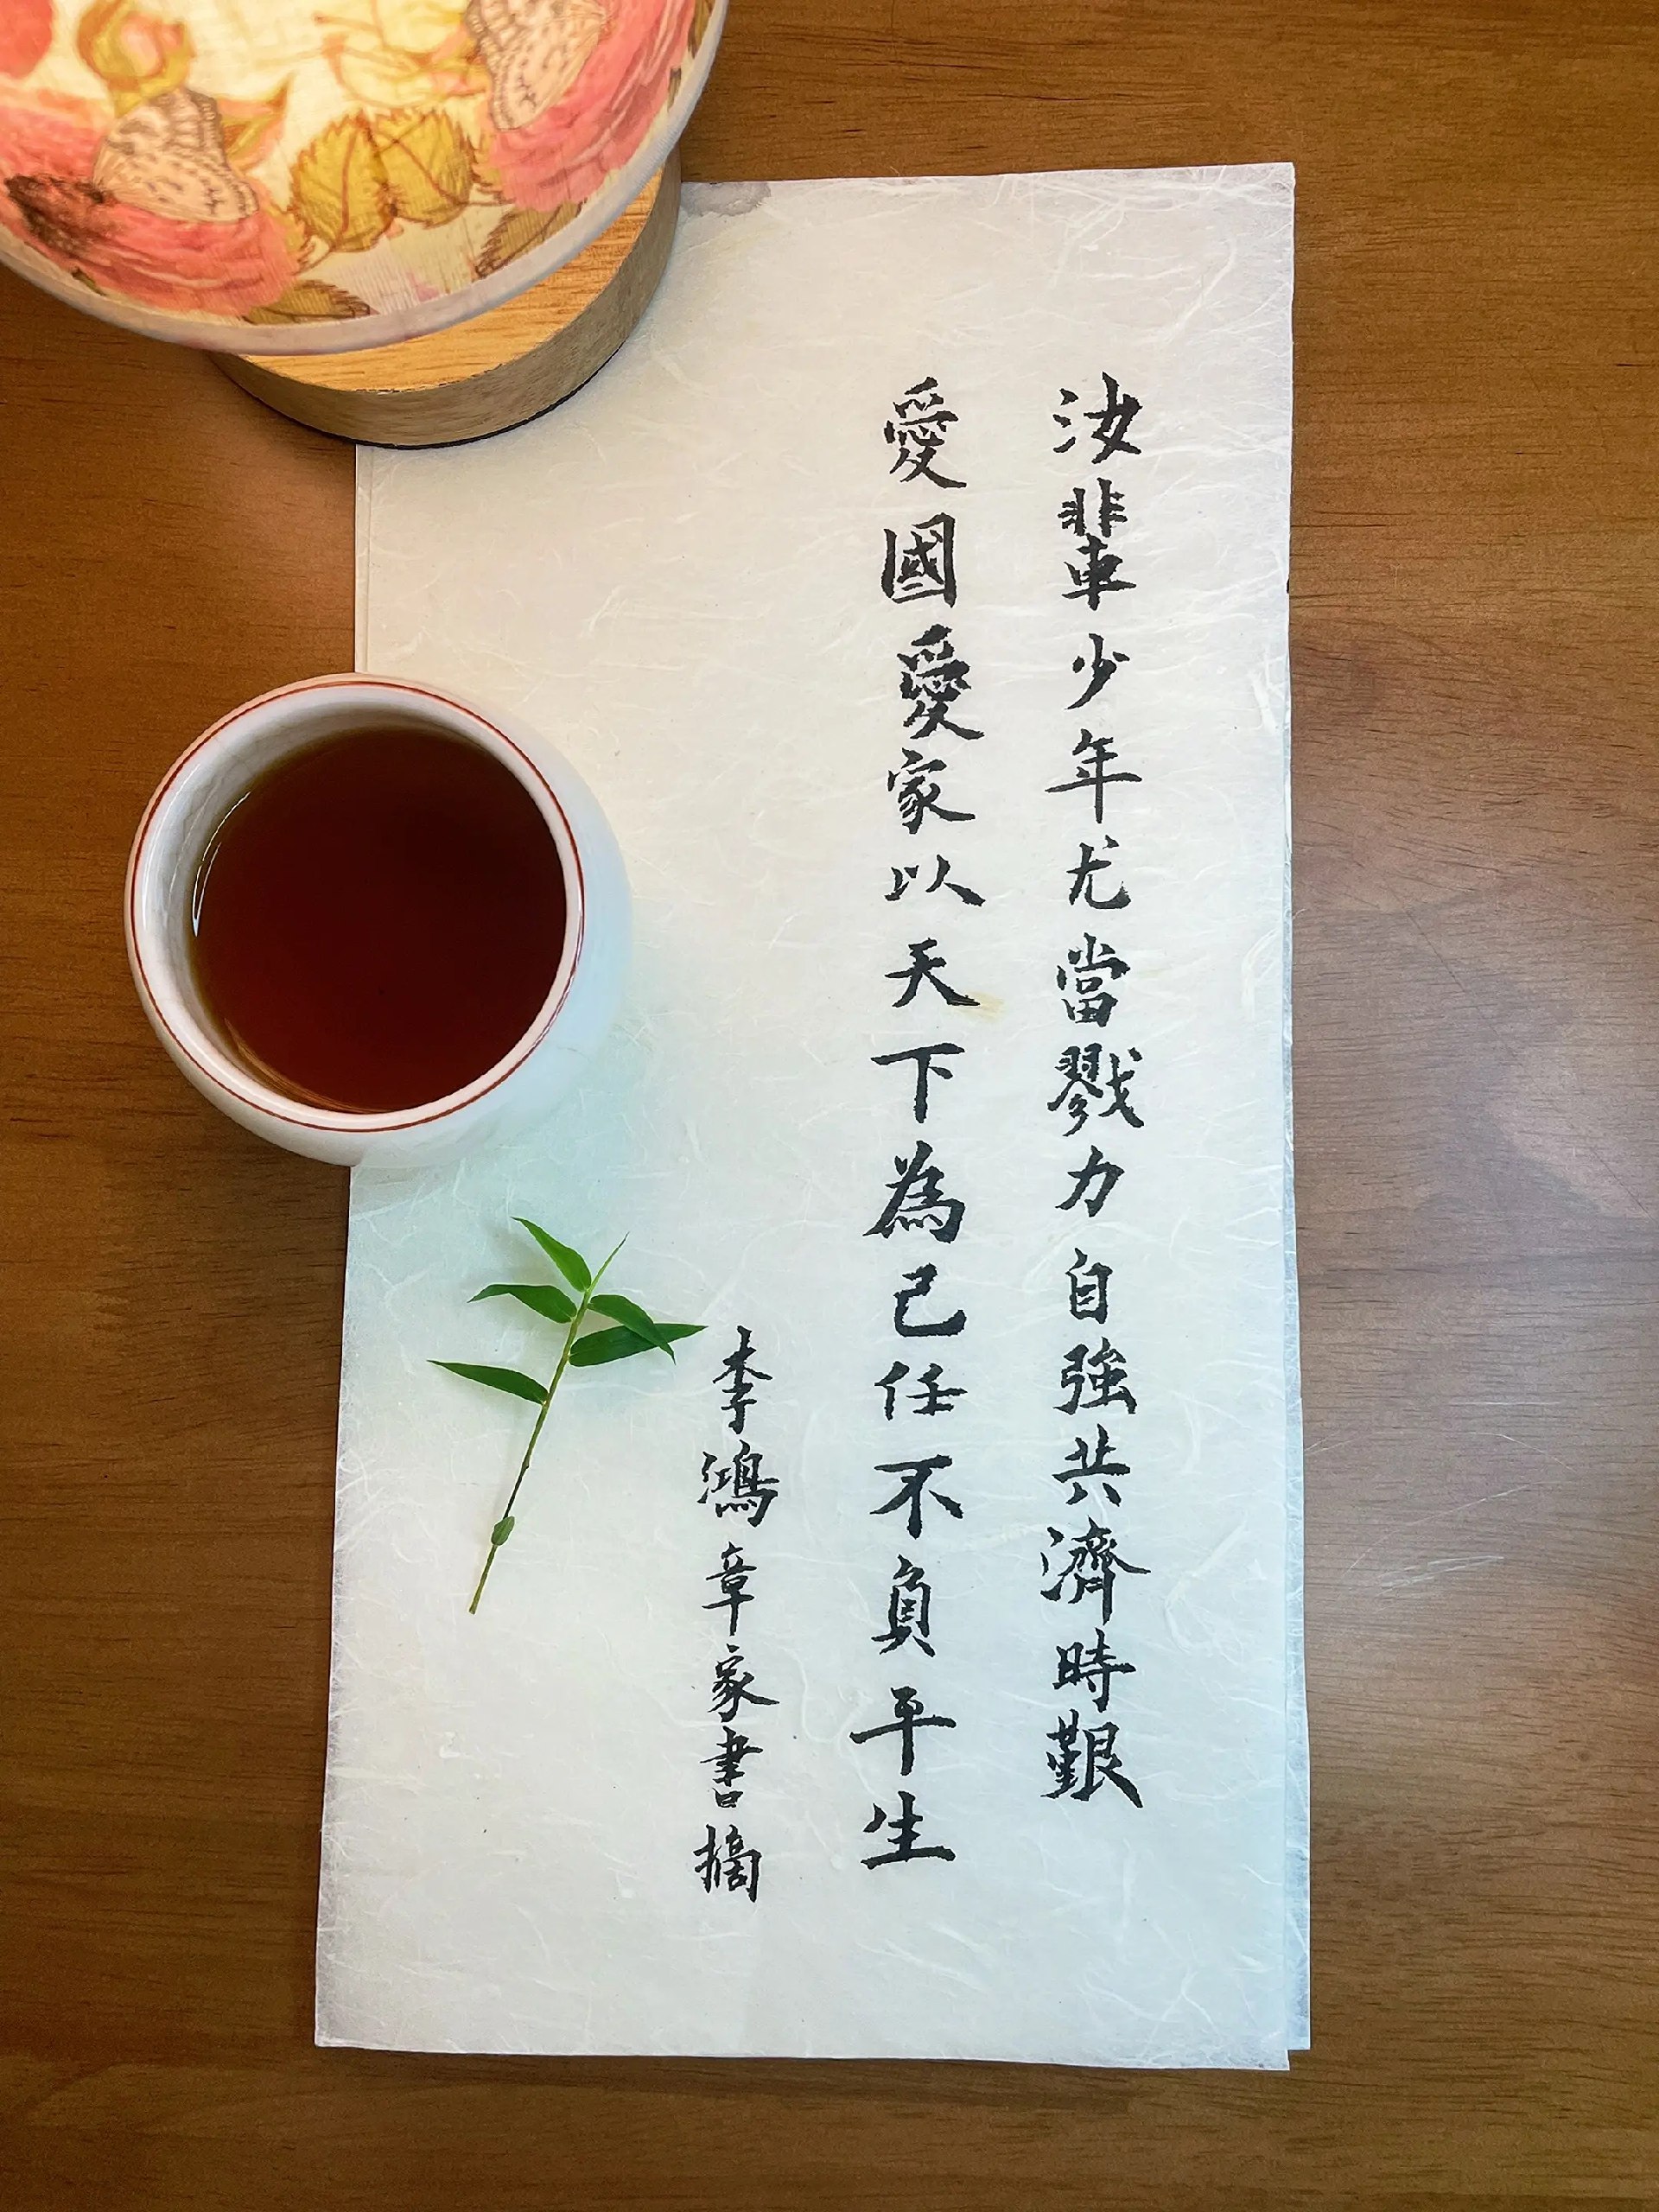 汝輩少年尤當戮力自強共濟時艱
愛國愛家以天下為己任不負平生
李鴻章家書摘